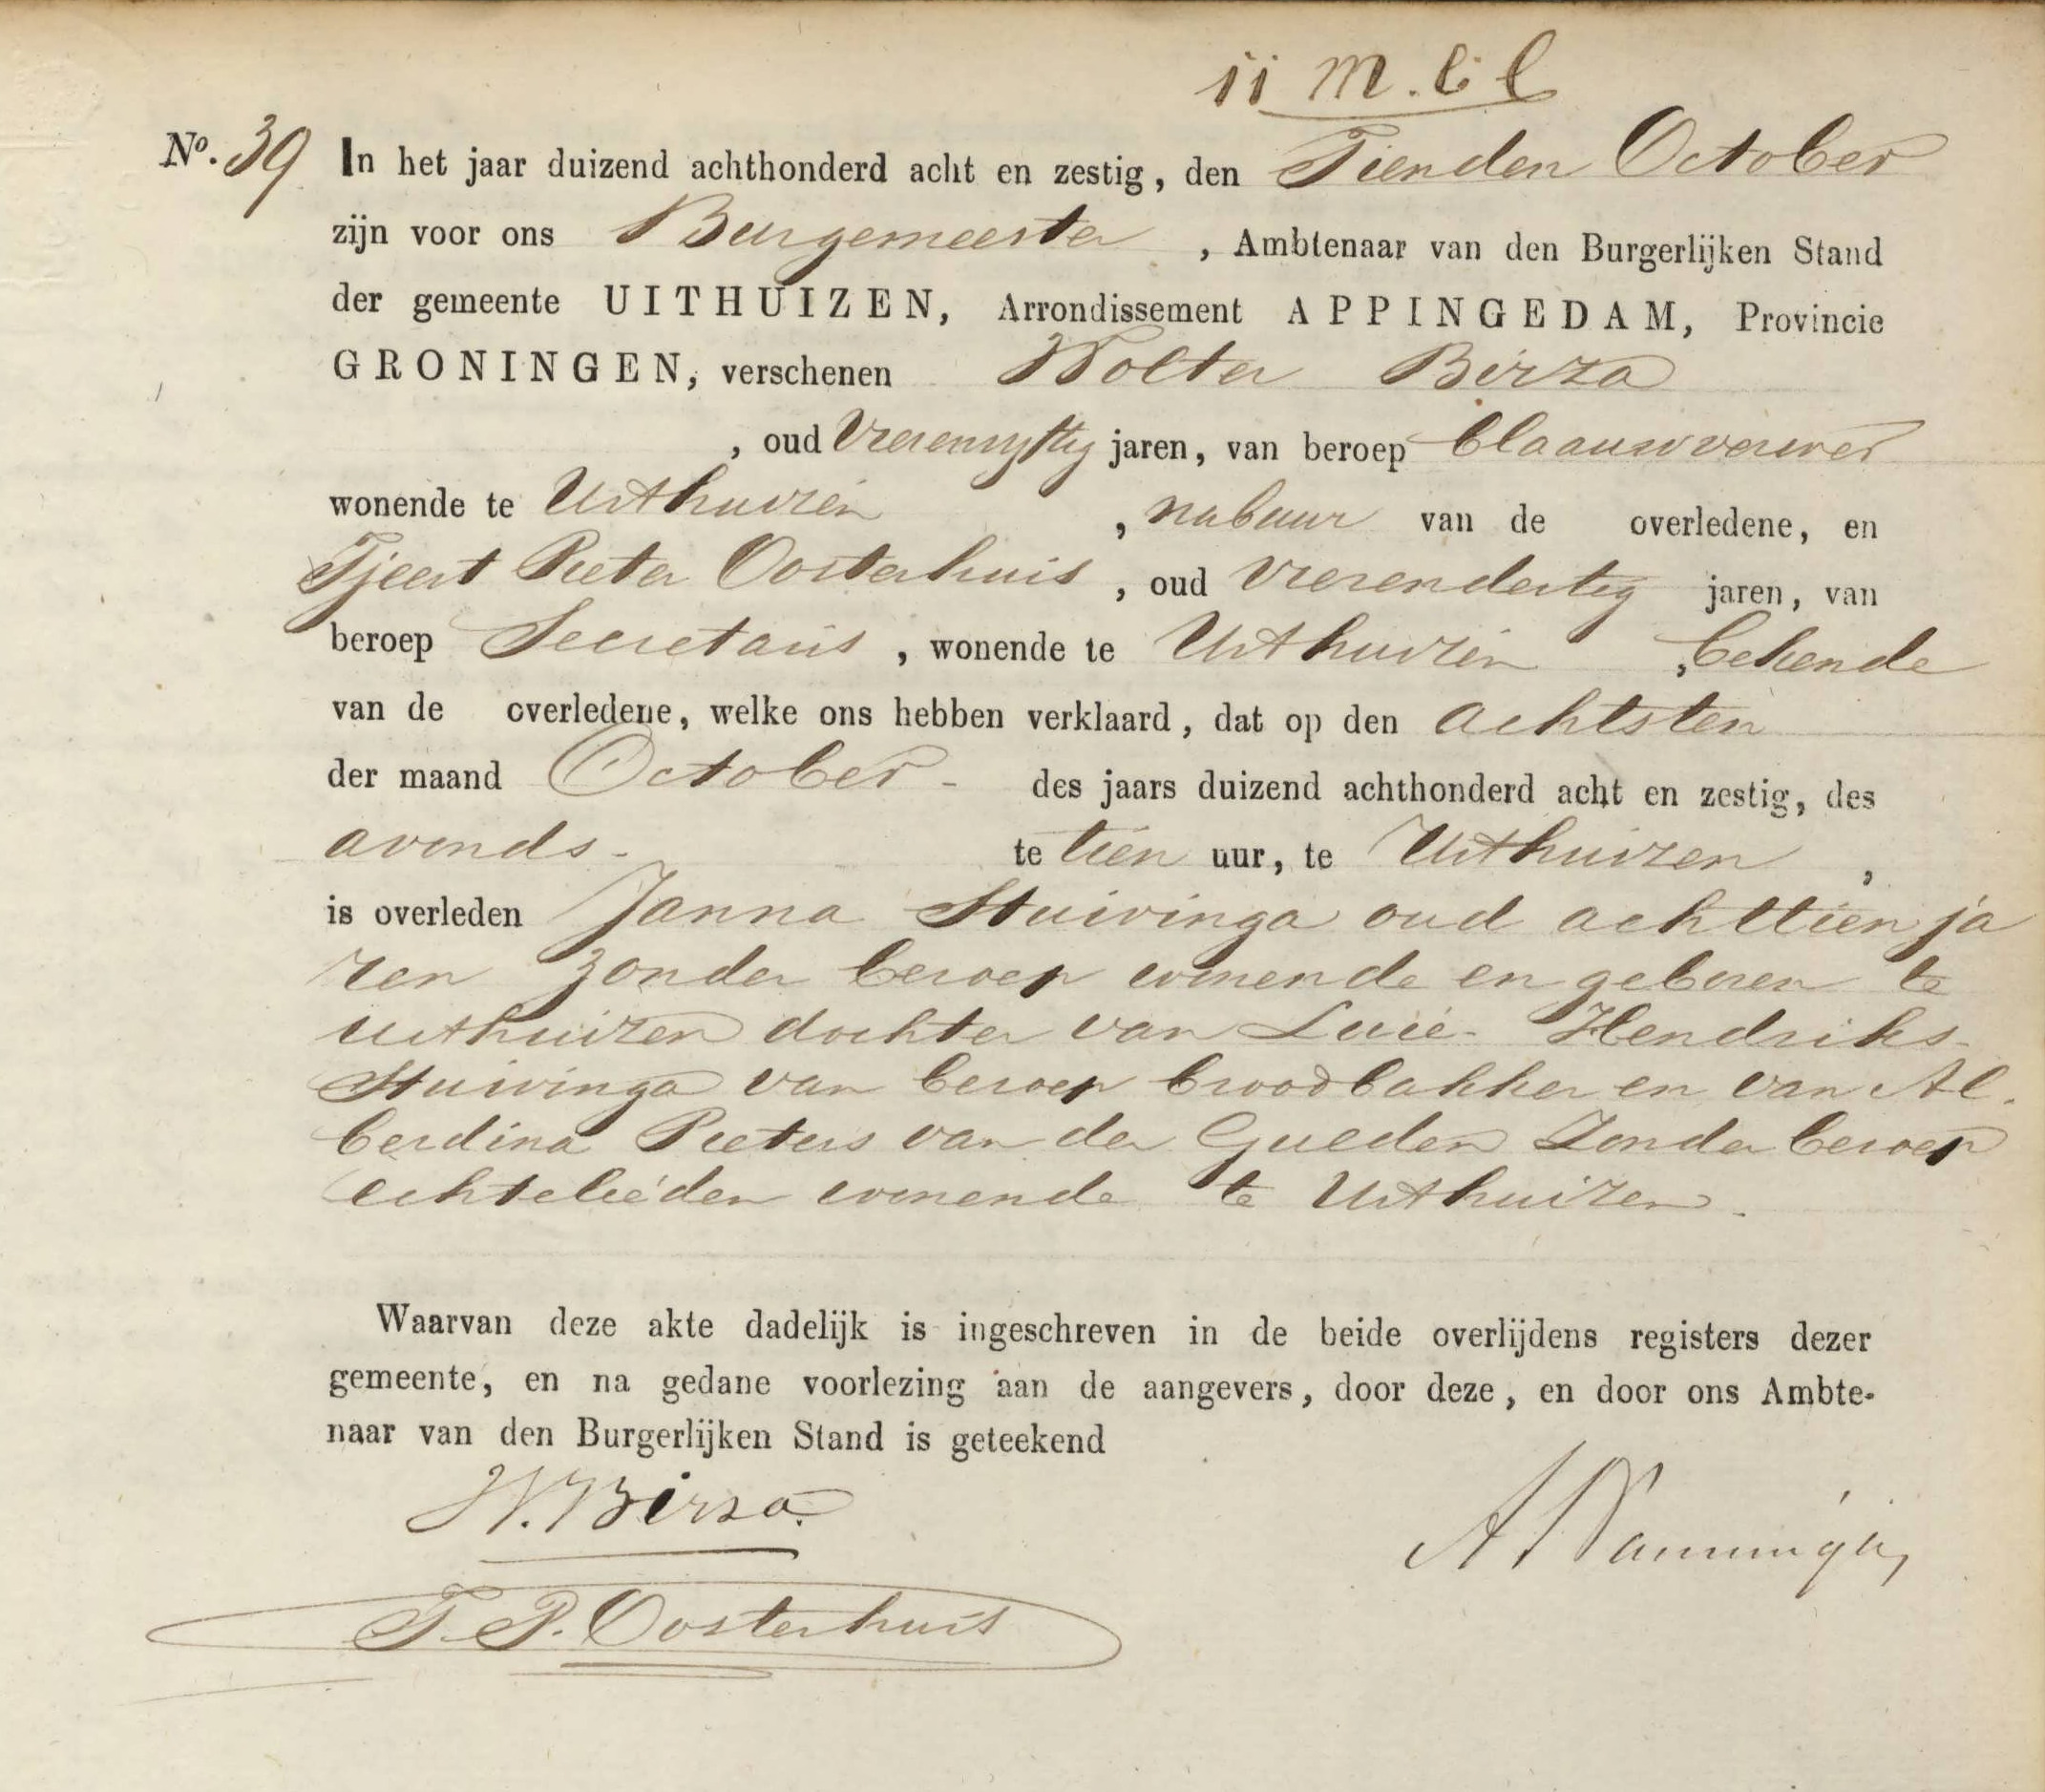 ii m. l l
No. 39 In het jaar duizend achthonderd acht en zestig, den Tienden October
zijn voor ons Burgemeester, Ambtenaar van den Burgerlijken Stand
der gemeente UITHUIZEN, Arrondissement APPINGEDAM, Provincie
GRONINGEN, verschenen Wolter Birza
, oud Vierenvyftig jaren, van beroep blaauwverwer
wonende te Uithuizen, nabuur van de overledene, en
Tjeert Pieter Oosterhuis, oud vierendertig jaren, van
beroep Secretaris, wonende te Uithuizen, bekende
van de overledene, welke ons hebben verklaard, dat op den achtsten
der maand October - des jaars duizend achthonderd acht en zestig, des
avonds - te tien uur, te Uithuizen,
is overleden Janna Stuivinga oud achttien ja
ren zonder beroep wonende en geboren te
Uithuizen dochter van Luie Hendriks
Stuivinga van beroep broodbakker en van Al
berdina Pieters van der Gulden Zonder beroep
echtelieden wonende te Uithuizen.
Waarvan deze akte dadelijk is ingeschreven in de beide overlijdens registers dezer
gemeente, en na gedane voorlezing aan de aangevers, door deze, en door ons Ambte-
naar van den Burgerlijken Stand is geteekend
W. Birza.
T. P. Oosterhuis